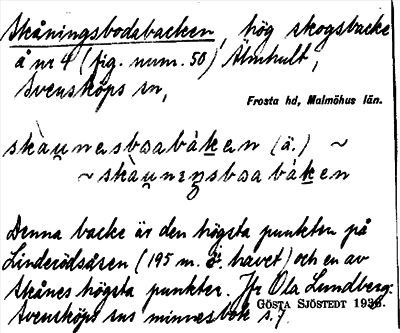 Skåningsbodabacken, hög skogsbacke
å nr 4 (fig. num. 50) Almhult,
Svensköps sn,
Frosta hd, Malmöhus län.
skàu̯nasboabákan (ä.) ~
~ skàu̯nıŋsboabákan
Denna backe är den högsta punkten på
Linderödsåsen (195 m. ö. havet) och en av
Skånes högsta punkter. Jfr Ola Lundberg:
Svensköps sns minnesbok s. 7.
GÖSTA SJÖSTEDT 1936.